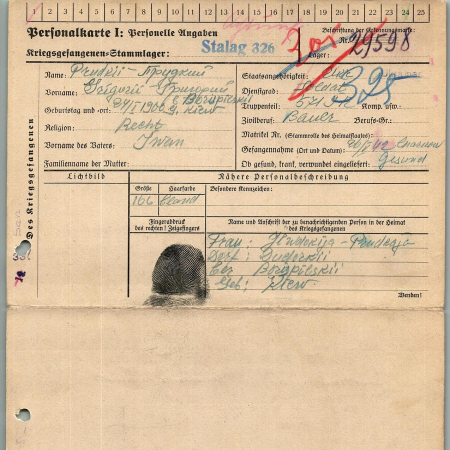 1 2 3 4 5 6 7 8 9 10 11 12 13 14 15 16 17 18 19 20 21 22 23 24 25
Personalkarte I: Personelle Angaben
Beschriftung der Erkennungsmarke:
Kriegsgefangenen-Stammlager: Stalag 326
Nr. 29598
Lager:
325
Des Kriegsgefangenen
Name: Prudkii - Прудкий
Vorname: Grigorii - Григорий
Geburtstag und -ort:
Religion: Recht
Vorname des Vaters: Iwan
Familienname der Mutter:
Staatsangehörigkeit:
Dienstgrad: Soldat
Truppenteil: Komp. usw.:
Zivilberuf: Bauer Berufs-Gr.:
Matrikel Nr. (Stammrolle des Heimatstaates):
Gefangennahme (Ort und Datum):
Ob gesund, krank, verwundet eingeliefert: Gesund
Lichtbild
Nähere Personalbeschreibung
Größe Haarfarbe Besondere Kennzeichen:
166 Blond
Fingerabdruck des rechten! Zeigefingers
Name und Anschrift der zu benachrichtigenden Person in der Heimat des Kriegsgefangenen
Frau:
Dorf:
Geb: Kiew
Wenden!